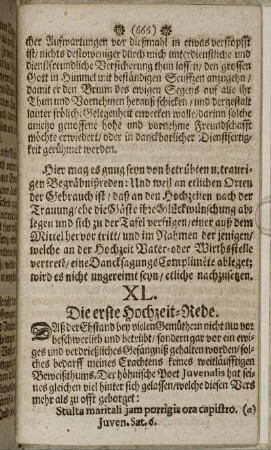 (666)
cher Aufwartungen vor dießmahl in etwas verstopfft
ist/ nichts destoweniger durch mich unterdienstliche und
dienstfreundliche Versicherung thun lassen/ den grossen
Gott in Himmel mit beständigen Seufftzen anzugehn/
damit er den Brunn des ewigen Segens auf alle ihr
Thun und Vornehmen herauß schicken/ und dergestalt
lauter fröliche Gelegenheit erwecken wolle/ darinn solche
anietzo genossene hohe und vornehme Freundschafft
möchte erwiedert/ oder in danckbarlicher Dienstfertig-
keit gerühmet werden.
Hier mag es gnug seyn von betrübten u. trauri-
gen Begräbnißreden: Und weil an etlichen Orten
der Gebrauch ist/ daß an den Hochzeiten nach der
Trauung/ ehe die Gäste ihre Glückwünschung ab
legen und sich zu der Tafel verfügen/ einer auß dem
Mittel hervor tritt/ und im Nahmen der jenigen/
welche an der Hochzeit Vater- oder Wirthsstelle
vertretē/ eine Dancksagungs Complimēte ableget;
wird es nicht ungereimt seyn/ etliche nachzusetzen.
XL.
Die erste Hochzeit-Rede.
Daß der Ehstand bey vielen Gemüthern nicht nur vor
beschwerlich und betrübt/ sondern gar vor ein ewi-
ges und verdrießliches Gefängniß gehalten worden/ sol-
ches bedarff meines Erachtens keines weitläufftigen
Beweißthums. Der höhnische Poet Juvenalis hat sei-
nes gleichen viel hinter sich gelassen/ welche diesen Vers
mehr als zu offt geborget:
Stulta maritali jam porrigis ora capistro. (a)
Juven. Sat. 6.